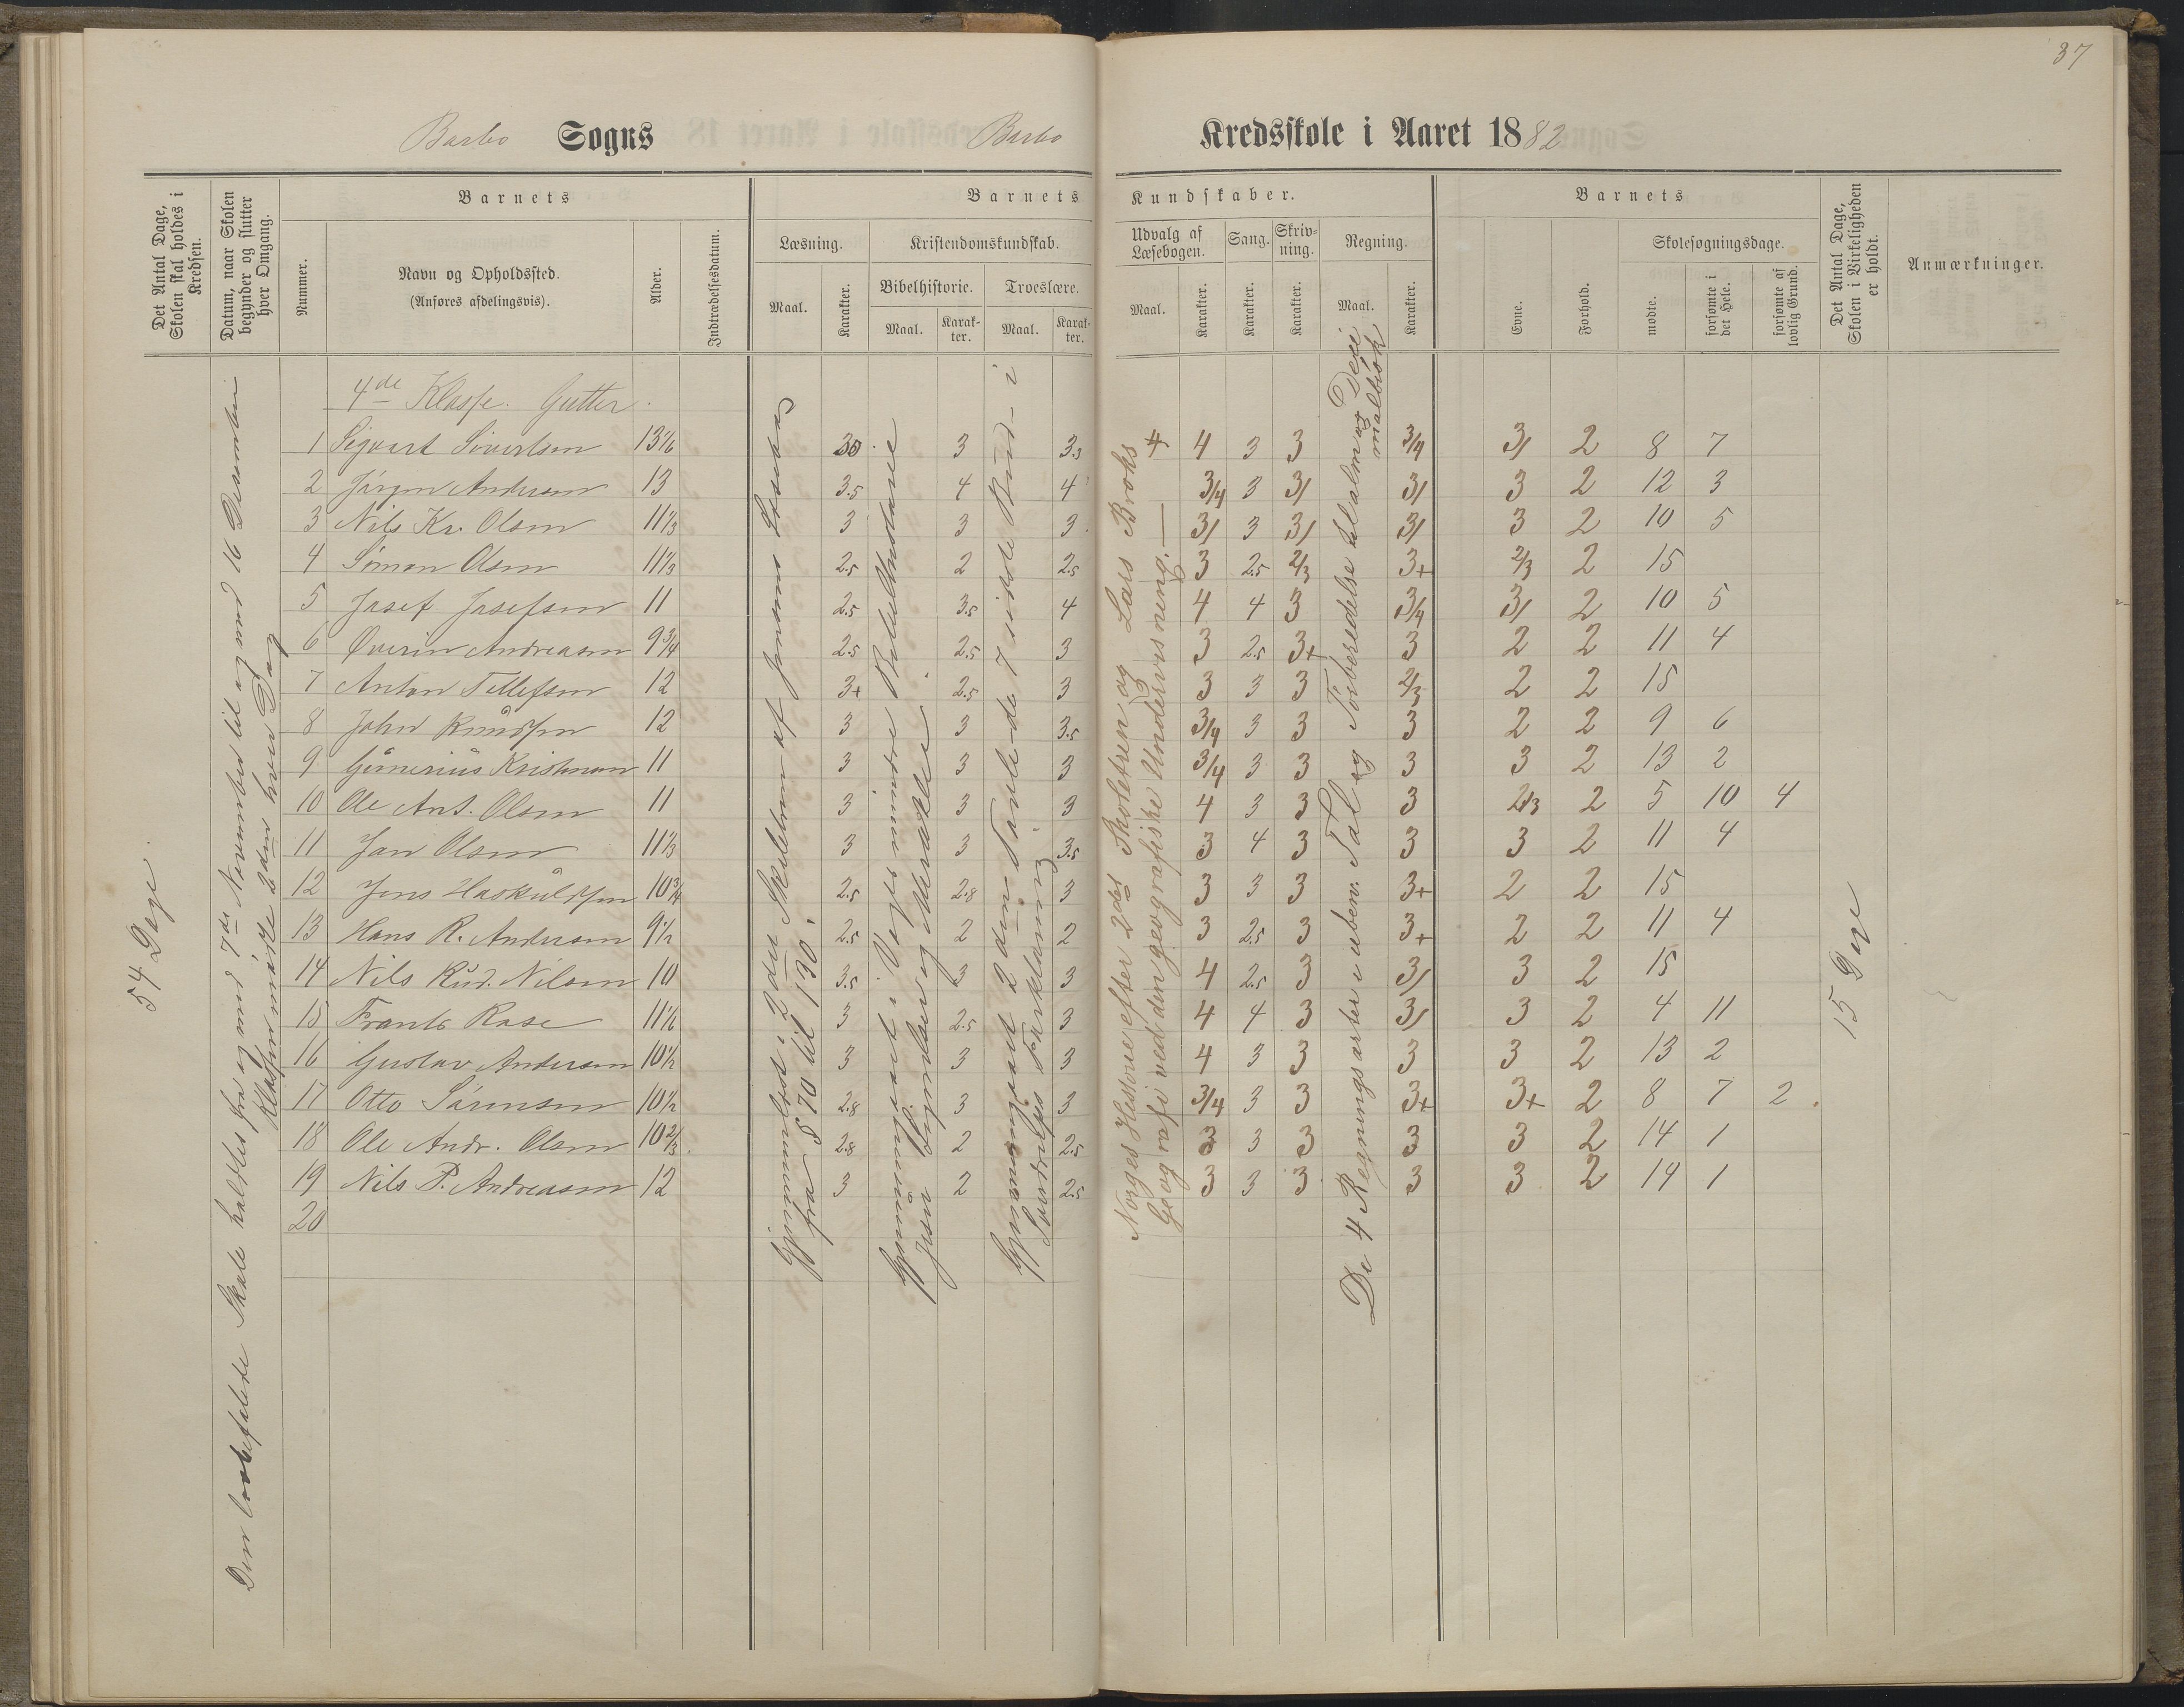 37
Barbo Sogns Barbo Kredsskole i Aaret 1882
Det Antal Dage, Skolen skal holdes i Kredsen.
Datum, naar Skolen begynder og slutter hver Omgang.
Barnets
Nummer.
Navn og Opholdssted.
(Anføres afdelingsvis).
Alder.
Indtrædelsesdatum.
Barnets Kundskaber.
Læsning.
Maal.
Karakter.
Kristendomskundskab.
Bibelhistorie.
Maal.
Karakter.
Troeslære.
Maal.
Karakter.
Udvalg af Læsebogen.
Maal.
Karakter.
Sang.
Karakter.
Skrivning.
Karakter.
Regning.
Maal.
Karakter.
Barnets
Evne.
Forhold.
Skolesøgningsdage.
mødte.
forsømte i det Hele.
forsømte af lovlig Grund.
Det Antal Dage, Skolen i Virkeligheden er holdt.
Anmærkninger.
54 Dage.
Den lovbefalede Skole holdtes fra og med 7de November til og med 16 Desember
Klassen mødte 2den hver Dag
4de Klasse. Gutter.
1 Sigvart Sivertsen 13 1/6 3 3.3 4 4 3 3 3/4 3/ 2 8 7
2 Jörgen Andersen 13 3.5 4 4 3/4 3 3/ 3/ 3 2 12 3
3 Nils Kr. Olsen 11 1/3 3 3 3 3/ 3 3/ 3/ 3 2 10 5
4 Simon Olsen 11 1/3 2.5 2 2.5 3 2.5 2/3 3+ 2/3 2 15
5 Josef Josefsen 11 2.5 3.5 4 4 4 3 3/4 3/ 2 10 5
6 Øverin Andreasen 9 3/4 2.5 2.5 3 3 2.5 3+ 3 2 2 11 4
7 Anton Tellefsen 12 3+ 2.5 3 3 3 3 2/3 2 2 15
8 John Knudsen 12 3 3 3.5 3/4 3 3 3 2 2 9 6
9 Kristensen 11 3 3 3 3/4 3 3 3 3 2 13 2
10 Ole Ant. Olsen 11 3 3 3 4 3 3 3 2/3 2 5 10 4
11 Jon Olsen 11 1/3 3 3 3.5 3 4 3 3 3 2 11 4
12 Jens Haskuldsen 10 3/4 2.5 2.8 3 3 3 3 3+ 2 2 15
13 Hans R. Andersen 9 1/2 2.5 2 2 3 2.5 3 3+ 2 2 11 4
14 Nils Rud. Nilsen 10 3.5 3 3 4 2.5 3 3/ 3 2 15
15 Frants Rose 11 1/6 3 2.5 3 4 4 3 3/ 3 2 4 11
16 Gustav Andersen 10 1/2 3 3 3 4 3 3 3 3 2 13 2
17 Otto Sörensen 10 1/2 2.8 3 3 3/4 3 3 3+ 3+ 2 8 7 2.
18 Ole Andr. Olsen 10 2/3. 2.8 2 2.5 3 3 3 3 3 2 14 1
19 Nils P. Andreasen 12 3 2 2.5 3 3 3 3 3 2 14 1
20
Gjennemlæst i 2det Skiletrin af Jensens Læsebog
fra S 70 til 130.
Gjennemgaaet i Vogts mindre Bibelhistorie
Jesu Lignelser og Mirakler.
Gjennemgaaet 2den Part de 7 sidste Bud i
Sverdrups Forklaring
Norges Historie efter 2det Skoletrin og Lars Broks
Geografi ved den geografiske Undervisning.
De 4 Regningsarter i uben. Tal og Forberedelse til alm og Deci
malbrök
15 Dage